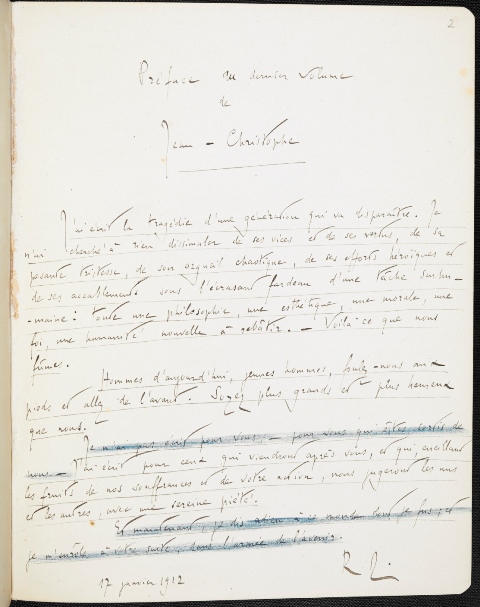 2
Préface au dernier volume
de
Jean-Christophe
J'ai écrit la tragédie d'une génération qui va disparaître. Je
n'ai cherché à rien dissimuler de ses vices et de ses vertus, de sa
pesante tristesse, de son orgueil chaotique, de ses efforts héroïques et
de ses accablements sous l'écrasant fardeau d'une tâche surhu-
-maine : toute une philosophie, une esthétique, une morale, une
foi, une humanité nouvelle à rebâtir. — Voilà ce que nous
fûmes.
Hommes d'aujourd'hui, jeunes hommes, foulez-nous aux
pieds et allez de l'avant. Soyez plus grands et plus heureux
que nous.
Je n'ai pas écrit pour vous, — pour vous qui êtes sortis de
nous — J'ai écrit pour ceux qui viendront après vous, et qui cueillant
les fruits de nos souffrances et de votre action, nous jugeront les uns
et les autres, avec une sereine piété.
Et maintenant, je dis adieu à ce monde dont je fus, et
je m'enrôle à votre suite, dans l'armée de l'avenir.
R R.
17 janvier 1912